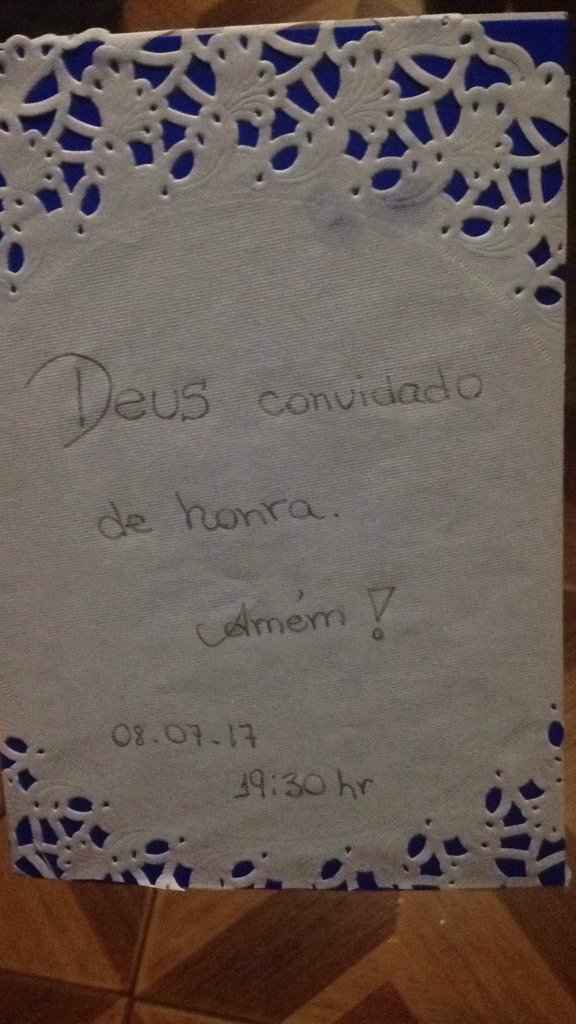 Deus convidado
de honra.
Amém!
08.07.17
19:30 hr